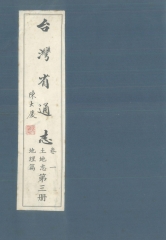 台灣省通志
卷一
土地志
地理篇
第三册
陳大慶